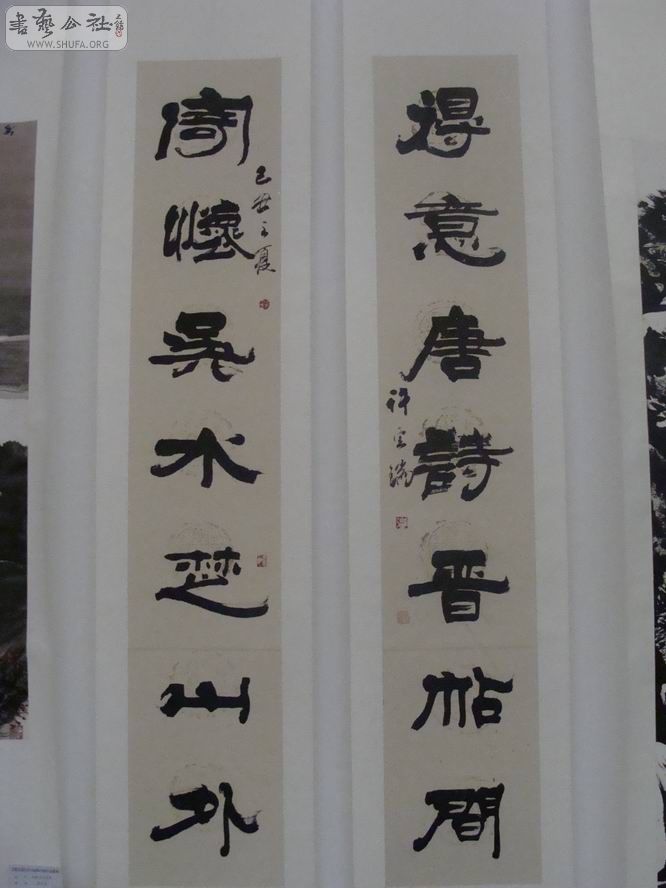 書藝公社
WWW.SHUFA.ORG
得意唐詩晋帖間
許云
寄懷吳水楚山外
己丑之夏